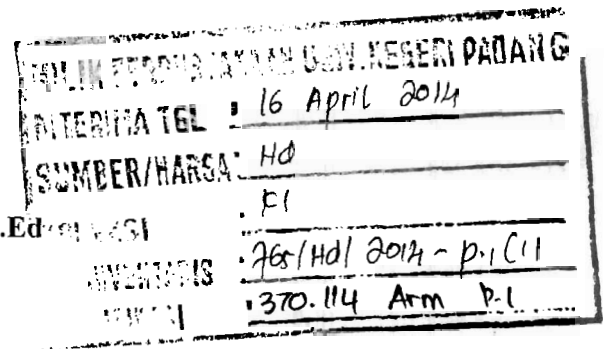 MILIK PERPUSTAKAAN UNIV. NEGERI PADANG
DITERIMA TGL : 16 April 2014
SUMBER/HARGA : Hd
KOLEKSI : KI
.Ed
INVENTARIS : 765/Hd/2014 - p.1 (1)
: 370.114 Arm p.1